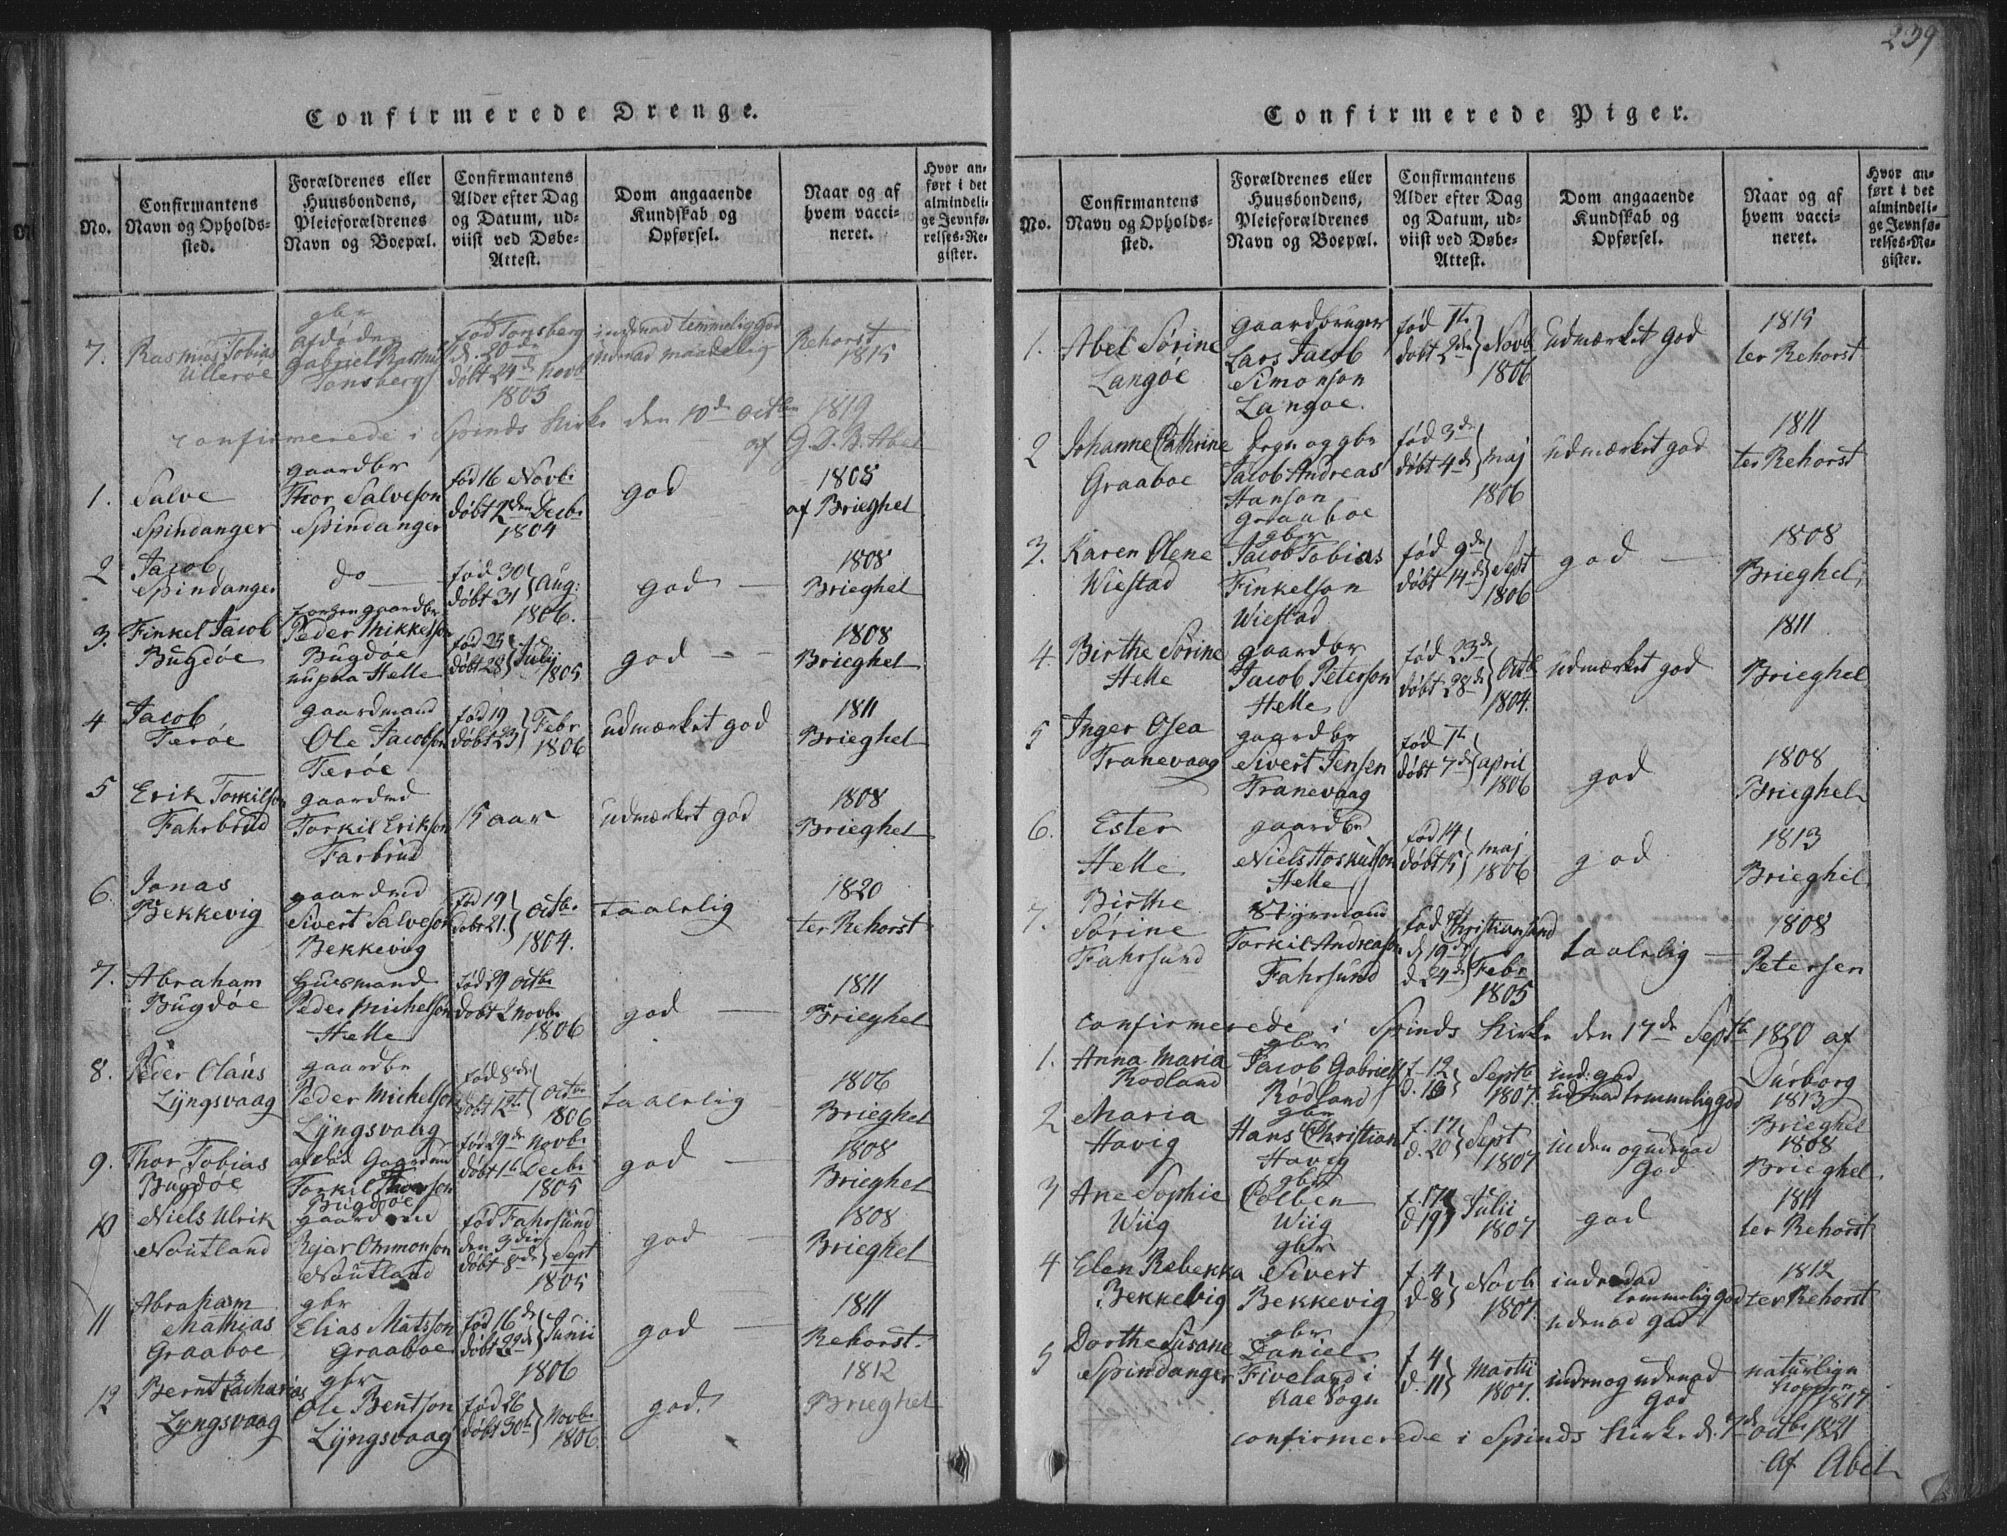 239
Confirmerede Drenge.
No.
Confirmantens
Navn og Opholds-
sted.
Forældrenes eller
Huusbondens,
Pleieforældrenes
Navn og Boepæl.
Confirmantens
Alder efter Dag
og Datum, ud-
viist ved Døbe-
Attest.
Dom angaaende
Kundskab og
Opførsel.
Naar og af
hvem vacci-
neret.
Hvor an-
ført i det
almindeli-
ge Jevnfø-
relses-Re-
gister.
7. Rasmus Tobias
Ullerøe
gbr
afdøde
Gabriel Rasmus
Tonsberg
fød Tonsberg
d. 20de
døbt 24de Novb
1805
indenad temmelig god
udenad maadelig
Rehorst
1815
confirmerede i Spinds Kirke den 10de Octbr 1819
af G. D. B. Abel
1. Salve
Spindanger
gaardbr
Thor Salveson
Spindanger
fød 16 Novb.
døbt 2den Decbr
1804
god
1805
af Brieghel
2 Jacob
Spindanger
do
fød 30
døbt 31 Aug:
1806.
god
1808
Brieghel
3. Finkel Jacob
Bugdøe
gaardbr
Peder Mikkelson
Bugdøe
nu paa Helle
fød 25
døbt 28 Julij
1805
god
1808
Brieghel
4 Jacob
Terøe
gaardmand
Ole Jacobson
Terøe
fød 19
døbt 23 Febr
1806
udmærket god
1811
Brieghel
5 Erik Torkilson
Fahrbrud
gaardmd
Torkil Erikson
Farbrud
15 aar
udmærket god
1808
Brieghel
6. Jonas
Bekkevig
gaardmd
Sivert Salveson
Bekkevig
fød 19
døbt 21. Octbr
1804.
taalelig
1820
ter Rehorst
7. Abraham
Bugdøe
Huusmand
Peder Michelson
Helle
fød 29 Octbr
døbt 2 Novbr
1806
god
1811
Brieghel
8. Peder Olaus
Lyngsvaag
gaardbr
Peder Michelson
Lyngsvaag
fød 8de
døbt 12te Octbr
1806
taalelig
1806
Brieghel
9. Thor Tobias
Bugdøe
afdød Gaardmd
Torkil Thorsen
Bugdøe
fød 29de Novbr
døbt 1te Decbr
1805
god
1808
Brieghel
10 Niels Ulrik
Noutland
gaardmd
Rejar Ommonson
Noutland
fød Fahrsund
den 3die
døbt 8de Sept
1805
god
1808
Brieghel
11 Abraham
Mathias
Graaboe
gbr
Elias Matsson
Graaboe
fød 16de
døbt 22de Junii
1806
god
1811
Rehorst.
12 Bernt Zacharias
Lyngsvaag
gbr
Ole Bentson
Lyngsvaag
fød 26
døbt 30te Novbr
1806.
god.
1812
Brieghel
Confirmerede Piger.
No.
Confirmantens
Navn og Opholds-
sted.
Forældrenes eller
Huusbondens,
Pleieforældrenes
Navn og Boepæl.
Confirmantens
Alder efter Dag
og Datum, ud-
viist ved Døbe-
Attest.
Dom angaaende
Kundskab og
Opførsel.
Naar og af
hvem vacci-
neret.
Hvor an-
ført i det
almindeli-
ge Jevnfø-
relses-Re-
gister.
1. Abel Sørine
Langøe
Gaardbruger
Lars Jacob
Simonson
Langøe.
fød 1te
døbt 2de Novb
1806
udmærket god
1815
ter Rehorst
2 Johanne Cathrine
Graaboe
gbr
Jacob Andreas
Hanson
Graaboe
fød 3de
døbt 4de Maj
1806
udmærket god
1811
ter Rehorst
3. Karen Olene
Wiestad
gbr
Jacob Tobias
Finkelson
Wiestad
fød 9de
døbt 14de Sept
1806
god
1808
Brieghel
4 Birthe Sørine
Helle
gaardbr
Jacob Peterson
Helle
fød 23de
døbt 28de Octb
1804.
udmærket god
1811
Brieghel
5 Inger Osea
Tranevaag
gaardbr
Sivert Jensen
Tranevaag
fød 1te
døbt 7de april
1806
god
1808
Brieghel
6. Ester
Helle
gaardbr
Niels Hoskulson
Helle
fød 14
døbt 15 maj
1806
god
1813
Brieghel
7. Birthe
Sørine
Fahrsund
Styrmand
Torkil Andreason
Fahrsund
fød Christiansund
d 19de
d. 24de Febr
1805
taalelig
1808
Petersen
confirmerede i Spinds Kirke den 17de Septb 1820 af
Durborg
1. Anna Maria
Rødland
gbr
Jacob Gabriels
Rødland
f. 12
d. 13 Septb
1807
ind: god
udenad temmelig god
1813
Brieghel
2 Maria
Havig
gbr
Hans Christian
Havig
f. 17
d. 20 Sept
1807
inden og udenad
God
1808
Brieghel
3 Ane Sophie
Wiig
gbr
Colben
Wiig
f. 17
d 19 Julii
1807
god
1811
ter Rehorst
4 Elen Rebekka
Bekkevig
gbr
Sivert
Bekkevig
f. 4
d. 8 Novb
1807.
indenad
temmelig god
udenad god
1812
ter Rehorst
5 Dorthe Susane
Spindanger
gbr
Daniel
Fiveland i
Aae Sogn
f. 4
d. 11 Martii
1807.
inden og udenad
God
naturlige
Kopper
1817
confirmerede i Spinds Kirke d. 7de Octbr 1821
Af Abel